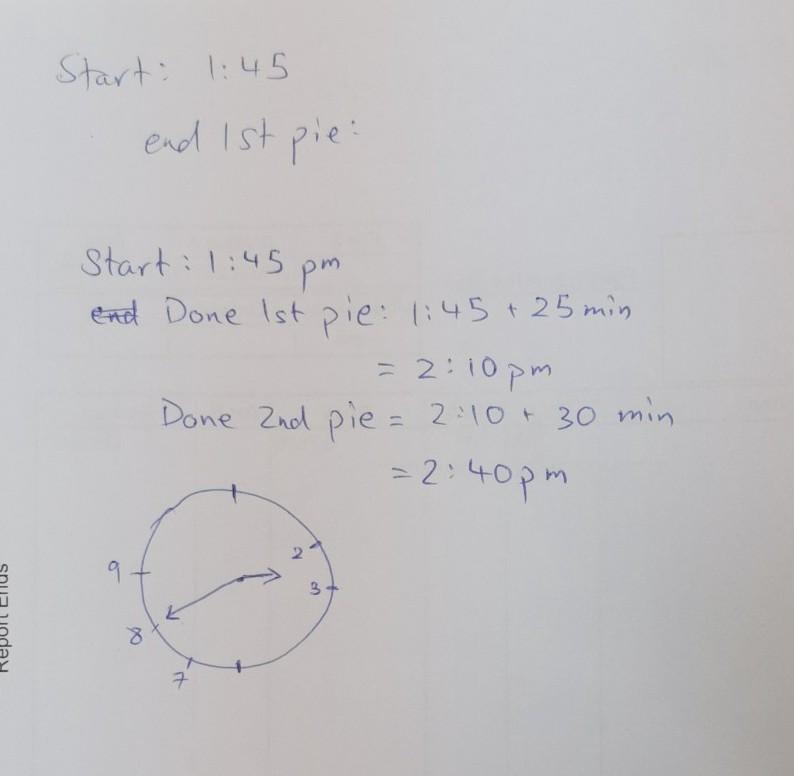 Start: 1:45
end 1st pie:
Start: 1:45 pm
end Done 1st pie: 1:45 + 25 min
= 2:10 pm
Done 2nd pie = 2:10 + 30 min
= 2:40 pm
2
9
3
8
7
Report Ends